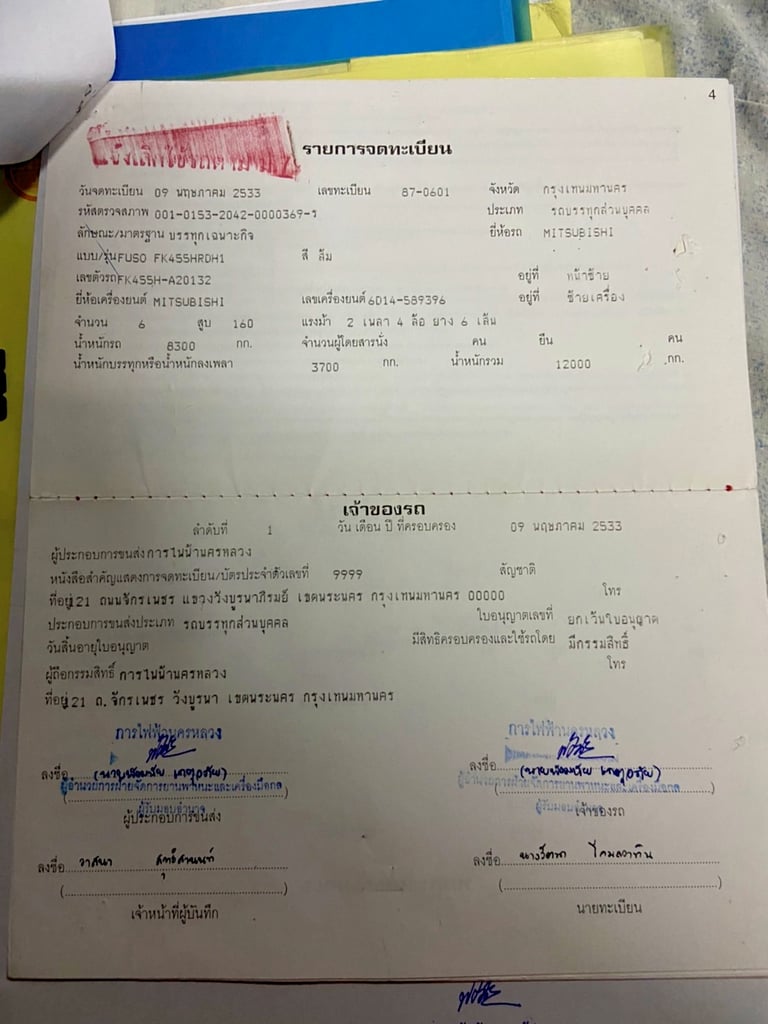 4
แจ้งเลิกใช้รถตาม
รายการจดทะเบียน
วันจดทะเบียน 09 พฤษภาคม 2533 เลขทะเบียน 87-0601 จังหวัด กรุงเทพมหานคร
รหัสตรวจสภาพ 001-0153-2042-0000369-ร ประเภท รถบรรทุกส่วนบุคคล
ลักษณะ/มาตรฐาน บรรทุกเฉพาะกิจ ยี่ห้อรถ MITSUBISHI
แบบ/รุ่น FUSO FK455HRDH1 สี ส้ม
เลขตัวรถ FK455H-A20132 อยู่ที่ หน้าซ้าย
ยี่ห้อเครื่องยนต์ MITSUBISHI เลขเครื่องยนต์ 6D14-589396 อยู่ที่ ซ้ายเครื่อง
จำนวน 6 สูบ 160 แรงม้า 2 เพลา 4 ล้อ ยาง 6 เส้น
น้ำหนักรถ 8300 กก. จำนวนผู้โดยสารนั่ง คน ยืน คน
น้ำหนักบรรทุกหรือน้ำหนักลงเพลา 3700 กก. น้ำหนักรวม 12000 กก.
เจ้าของรถ
ลำดับที่ 1 วัน เดือน ปี ที่ครอบครอง 09 พฤษภาคม 2533
ผู้ประกอบการขนส่ง การไฟฟ้านครหลวง
หนังสือสำคัญแสดงการจดทะเบียน/บัตรประจำตัวเลขที่ 9999 สัญชาติ
ที่อยู่ 21 ถนนจักรเพชร แขวงวังบูรพาภิรมย์ เขตพระนคร กรุงเทพมหานคร 00000 โทร
ประกอบการขนส่งประเภท รถบรรทุกส่วนบุคคล ใบอนุญาตเลขที่ ยกเว้นใบอนุญาต
วันสิ้นอายุใบอนุญาต มีสิทธิครอบครองและใช้รถโดย มีกรรมสิทธิ์
ผู้ถือกรรมสิทธิ์ การไฟฟ้านครหลวง โทร
ที่อยู่ 21 ถ.จักรเพชร วังบูรพา เขตพระนคร กรุงเทพมหานคร
การไฟฟ้านครหลวง การไฟฟ้านครหลวง
ลงชื่อ ลงชื่อ
ผู้อำนวยการฝ่ายจัดการยานพาหนะและเครื่องมือกล ผู้อำนวยการฝ่ายจัดการยานพาหนะและเครื่องมือกล
ผู้รับมอบอำนาจ ผู้รับมอบอำนาจ
ผู้ประกอบการขนส่ง เจ้าของรถ
ลงชื่อ วาสนา ลงชื่อ
(....................) (....................)
เจ้าหน้าที่ผู้บันทึก นายทะเบียน